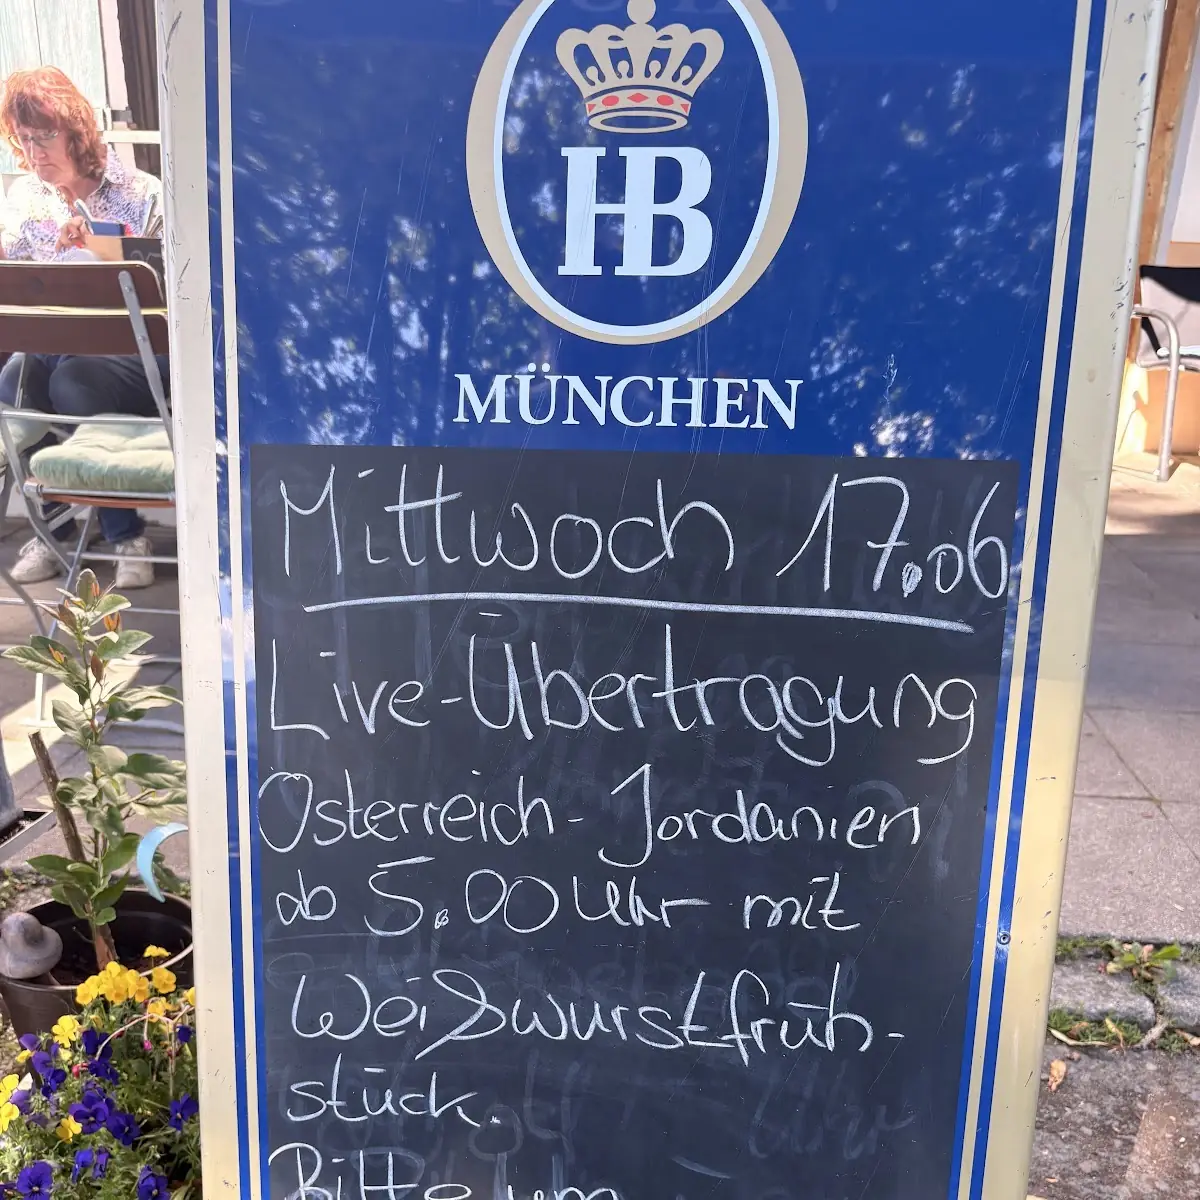 HB
MÜNCHEN
Mittwoch 17.06
Live-Übertragung
Österreich - Jordanien
ab 5.00 Uhr mit
Weißwurstfrüh-
stück.
Bitte um